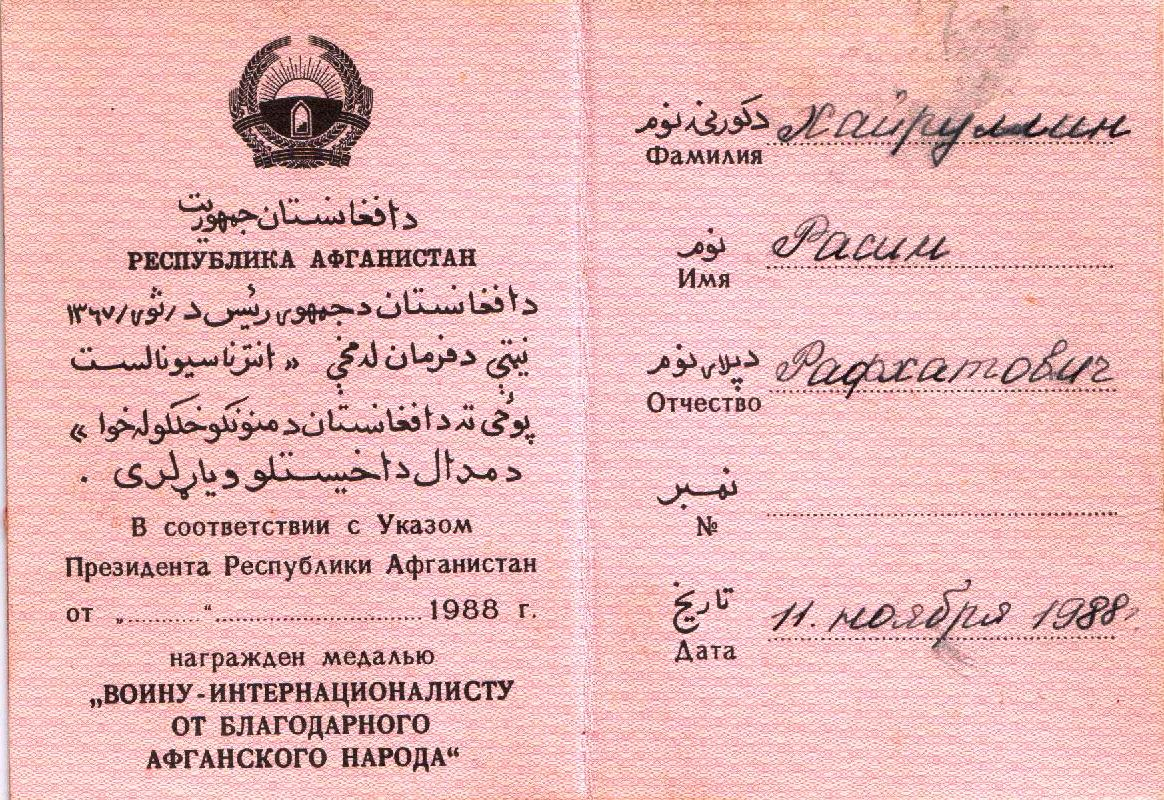 دافغانستان جمهوریت
РЕСПУБЛИКА АФГАНИСТАН
دافغانستان د جمهوری رئیس د /ثور/ ۱۳۶۷
نیټې د فرمان له مخې « انترناسیونالست
پوځي ته د افغانستان د منونکو خلکو له خوا »
د مدال د اخیستلو ویاړ لری .
В соответствии с Указом
Президента Республики Афганистан
от „..........“.............................. 1988 г.
награжден медалью
„ВОИНУ-ИНТЕРНАЦИОНАЛИСТУ
ОТ БЛАГОДАРНОГО
АФГАНСКОГО НАРОДА“
دکورنۍ نوم
Фамилия Хайруллин
نوم
Имя Расим
دپلار نوم
Отчество Рафхатович
نمبر
№
تاریخ
Дата 11. ноября 1988г.